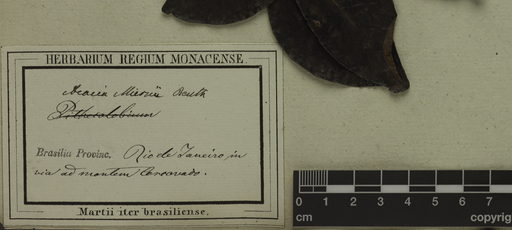 HERBARIUM REGIUM MONACENSE.
Acacia Miersii Benth
Pithecolobium
Brasilia Provinc. Rio de Janeiro, in
via ad montem Corcovado.
Martii iter brasiliense.
0 1 2 3 4 5 6 7
cm copyrig